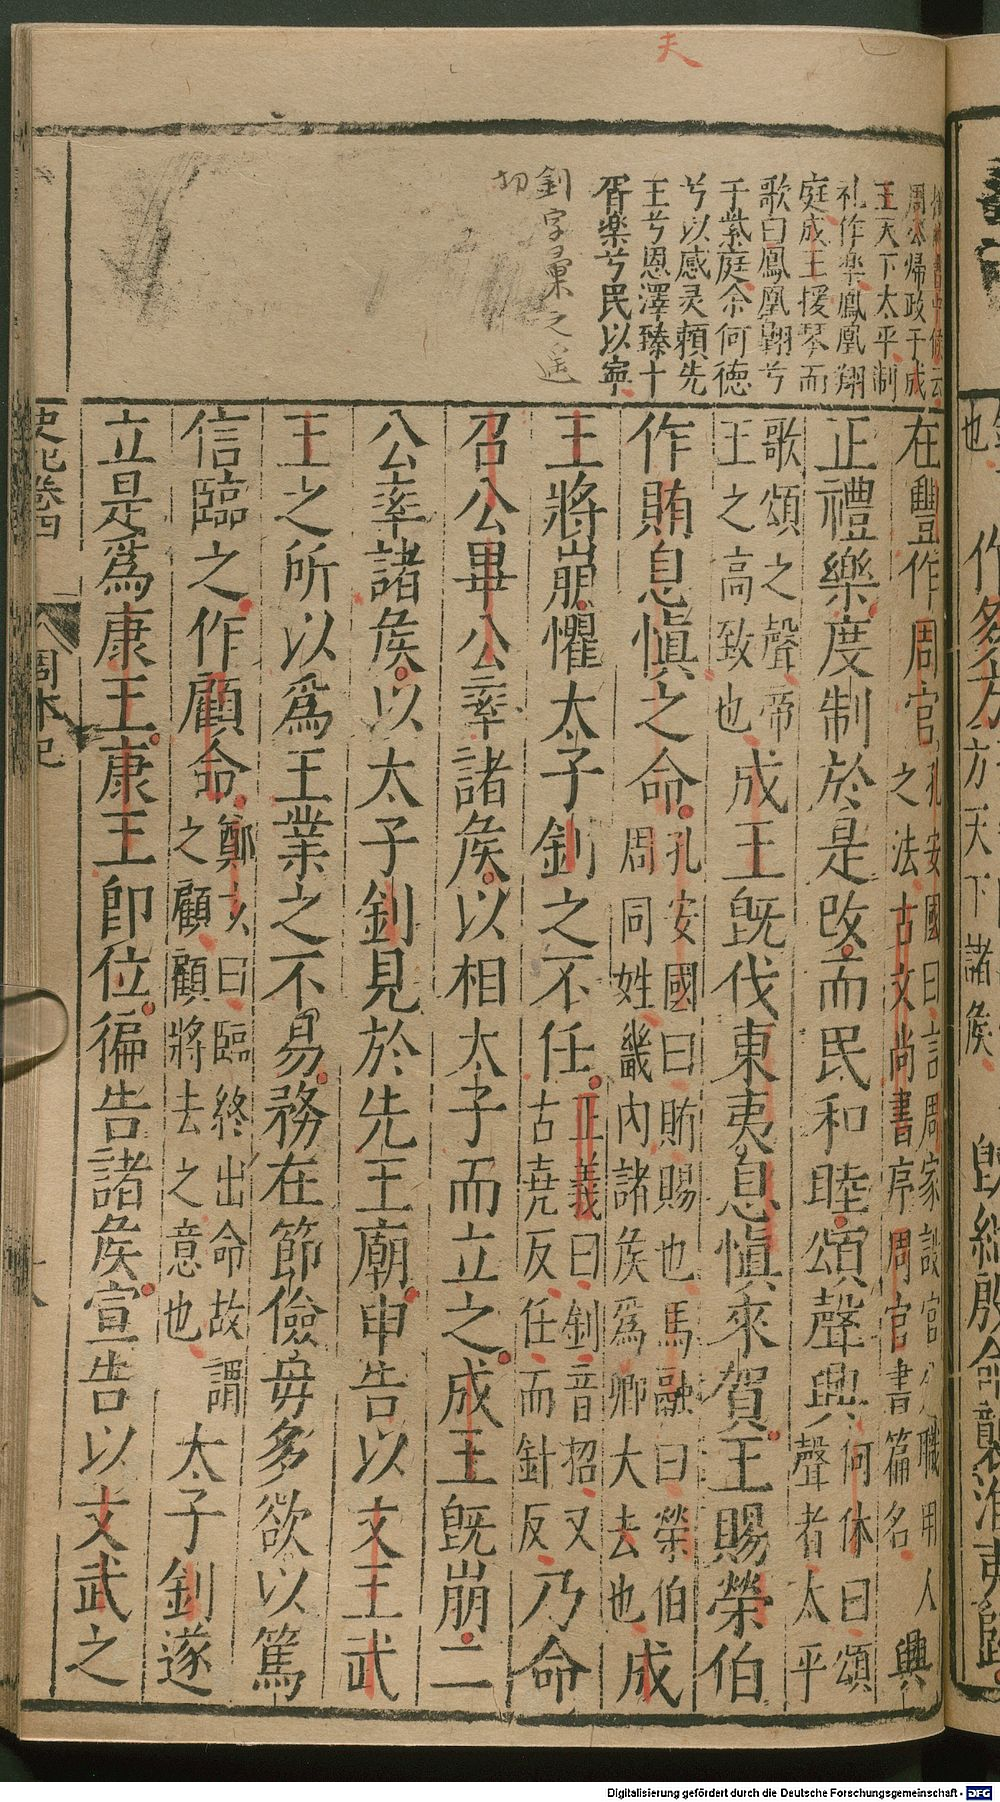 夫
周公帰政于成
王天下太平制
礼作楽鳳凰翔
庭成王援琴而
歌曰鳳凰翔兮
于紫庭余何徳
兮以感灵頼先
王兮恩澤臻十
胥楽兮民以寧
釗字彙之遥
切
在豐作周官孔安國曰言周家設官分職用人
之法古文尚書序周官書篇名興
正禮樂度制於是改而民和睦頌聲興何休曰頌
聲者太平
歌頌之聲帝
王之高致也成王旣伐東夷息慎來賀王賜榮伯
作賄息慎之命孔安國曰賄賜也馬融曰榮伯
周同姓畿內諸侯爲卿大夫也成
王將崩懼太子釗之不任正義曰釗音招又
古堯反任而針反乃命
召公畢公率諸侯以相太子而立之成王旣崩二
公率諸侯以太子釗見於先王廟申告以文王武
王之所以爲王業之不易務在節儉毋多欲以篤
信臨之作顧命鄭玄曰臨終出命故謂
之顧顧將去之意也太子釗遂
立是爲康王康王卽位徧告諸侯宣告以文武之
史記卷四
周本紀
十八
也
作多方
方天下諸侯
旣絀殷命襲淮夷歸
Digitalisierung gefördert durch die Deutsche Forschungsgemeinschaft - DFG